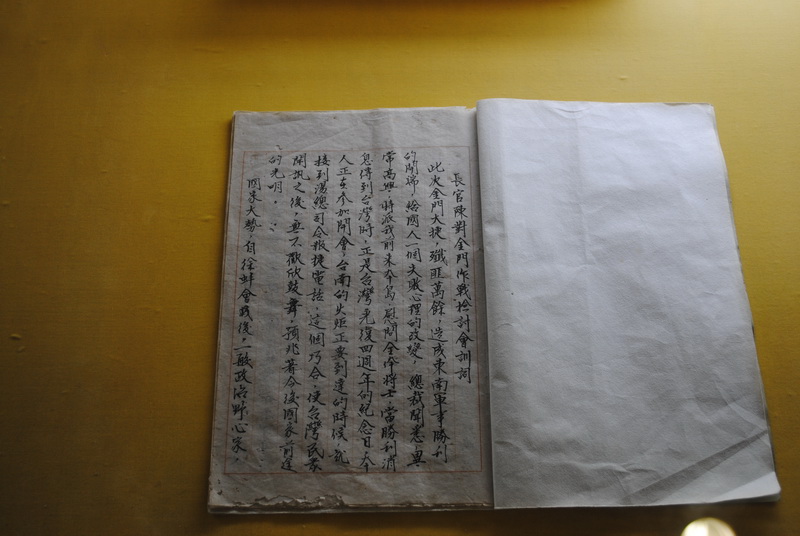 長官陳對金門作戰檢討會訓詞
此次金門大捷，殲匪萬餘，造成東南軍事勝利
的開端，給國人一個失敗心理的改變，總裁聞悉，異
常高興，特派我前來本島，慰問全体將士，當勝利消
息得到台灣時，正是台灣光復四週年的紀念日，本
人正在參加開會，台南的火炬正要到達的時候，就
接到湯總司令報捷電話，這個巧合，使台灣民眾
聞訊之後，無不歡欣鼓舞，預兆著今後國家前途
的光明。
國家大勢，自徐蚌會戰後，一般政治野心家，